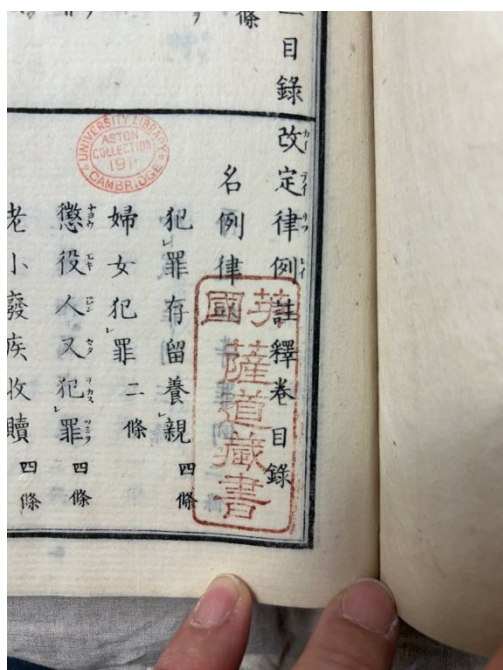 目錄
改定律例註釋卷目錄
名例律
犯罪存留養親 四條
婦女犯罪 二條
懲役人又犯罪 四條
老小廢疾收贖 四條
條
UNIVERSITY LIBRARY
ASTON
COLLECTION
1911
CAMBRIDGE
英國
薩道藏書